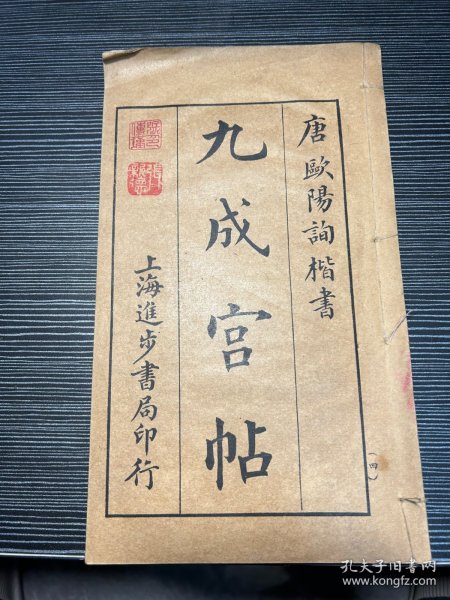 唐歐陽詢楷書
九成宫帖
上海進步書局印行
(四)
孔夫子旧书网
www.kongfz.com